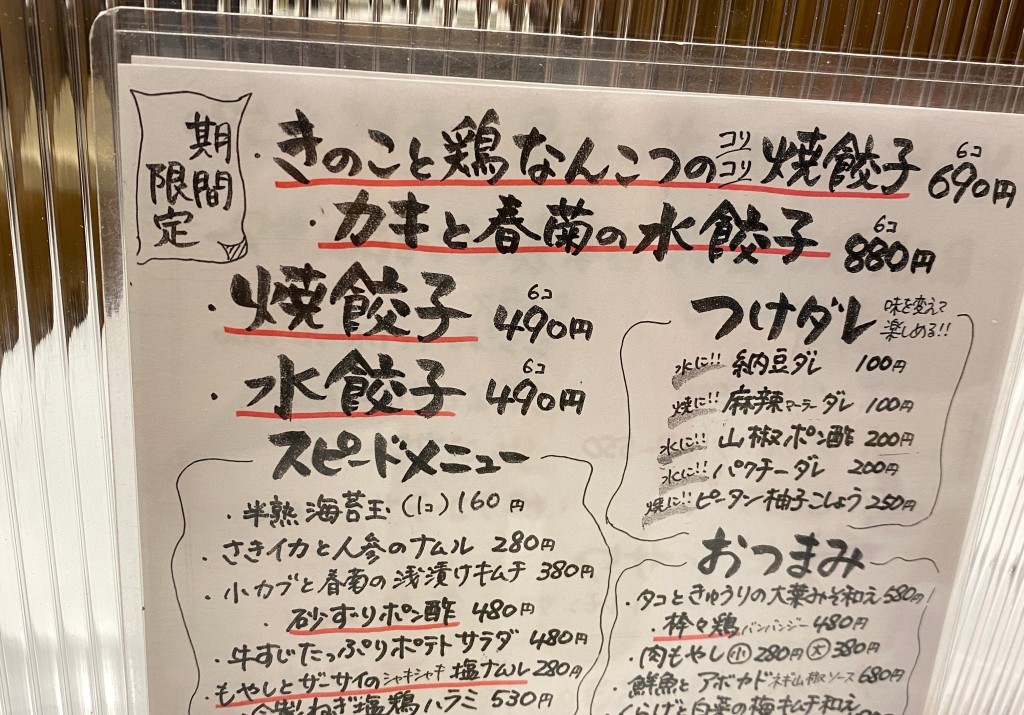 期間
限定
・きのこと鶏なんこつのコリコリ焼餃子 6コ 690円
・カキと春菊の水餃子 6コ 880円
・焼餃子 6コ 490円
・水餃子 6コ 490円
つけダレ 味を変えて楽しめる!!
水に!! 納豆ダレ 100円
焼に!! 麻辣マーラーダレ 100円
水に!! 山椒ポン酢 200円
水に!! パクチーダレ 200円
焼に!! ピータン柚子こしょう 250円
スピードメニュー
・半熟海苔玉(1コ) 160円
・さきイカと人参のナムル 280円
・小カブと春菊の浅漬けキムチ 380円
砂ずりポン酢 480円
・牛すじたっぷりポテトサラダ 480円
・もやしとザーサイのシャキシャキ塩ナムル 280円
ねぎ塩鶏ハラミ 530円
おつまみ
・タコときゅうりの大葉みそ和え 580円
・棒々鶏バンバンジー 480円
・肉もやし 小 280円 大 380円
・鮮魚とアボカド ネギ山椒ソース 680円
くらげと白菜の梅キムチ和え